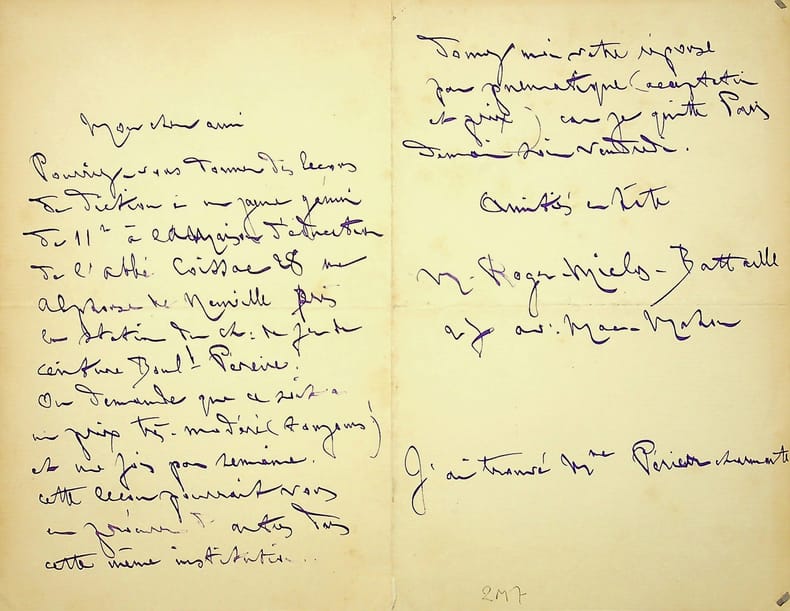 Mon cher ami
Pourriez-vous donner des leçons
de diction à un jeune gamin
de 11 ans à la Maison d'éducation
de l'abbé Coissac 28 rue
Alphonse de Neuville près
la station du ch: de fer de
ceinture Boul^t Pereire.
On demande que ce soit à
un prix très-modéré (toujours)
et une fois par semaine.
cette leçon pourrait vous
en procurer d'autres dans
cette même institution..
Donnez moi votre réponse
par pneumatique (acceptation
et prix) car je quitte Paris
demain soir vendredi.
Amitiés en hâte
M. Roger-Miclos-Battaille
27 av: Mac-Mahon
J'ai trouvé M^me Périer charmante
2M7